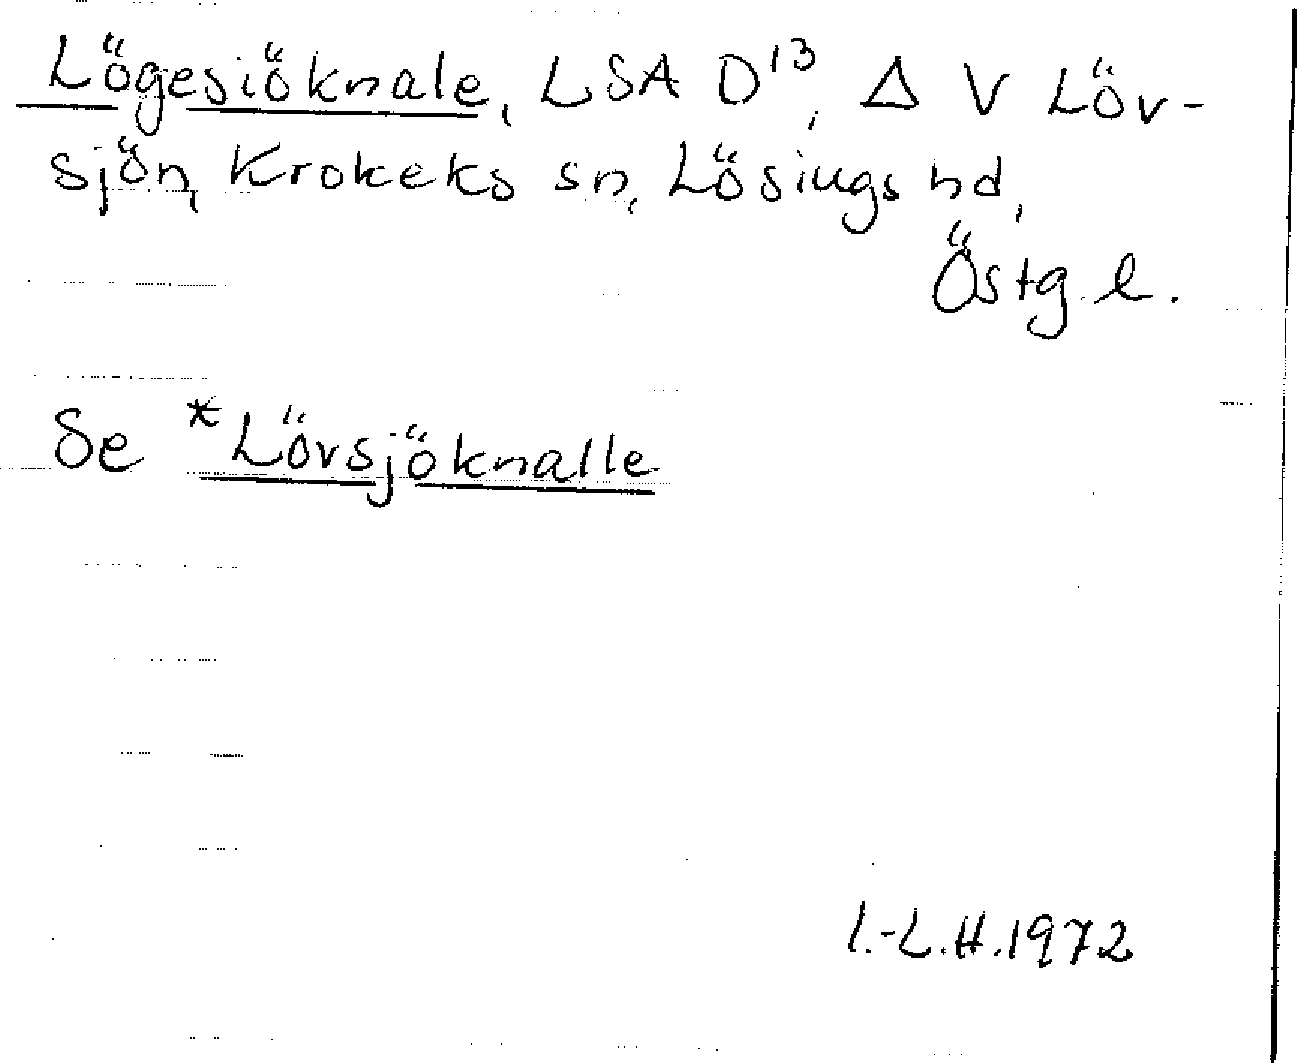 Lögesiöknale, LSA D¹³, Δ V Löv-
sjön, Krokeks sn, Lösings hd,
Östg. l.
Se *Lövsjöknalle
I.-L.H.1972